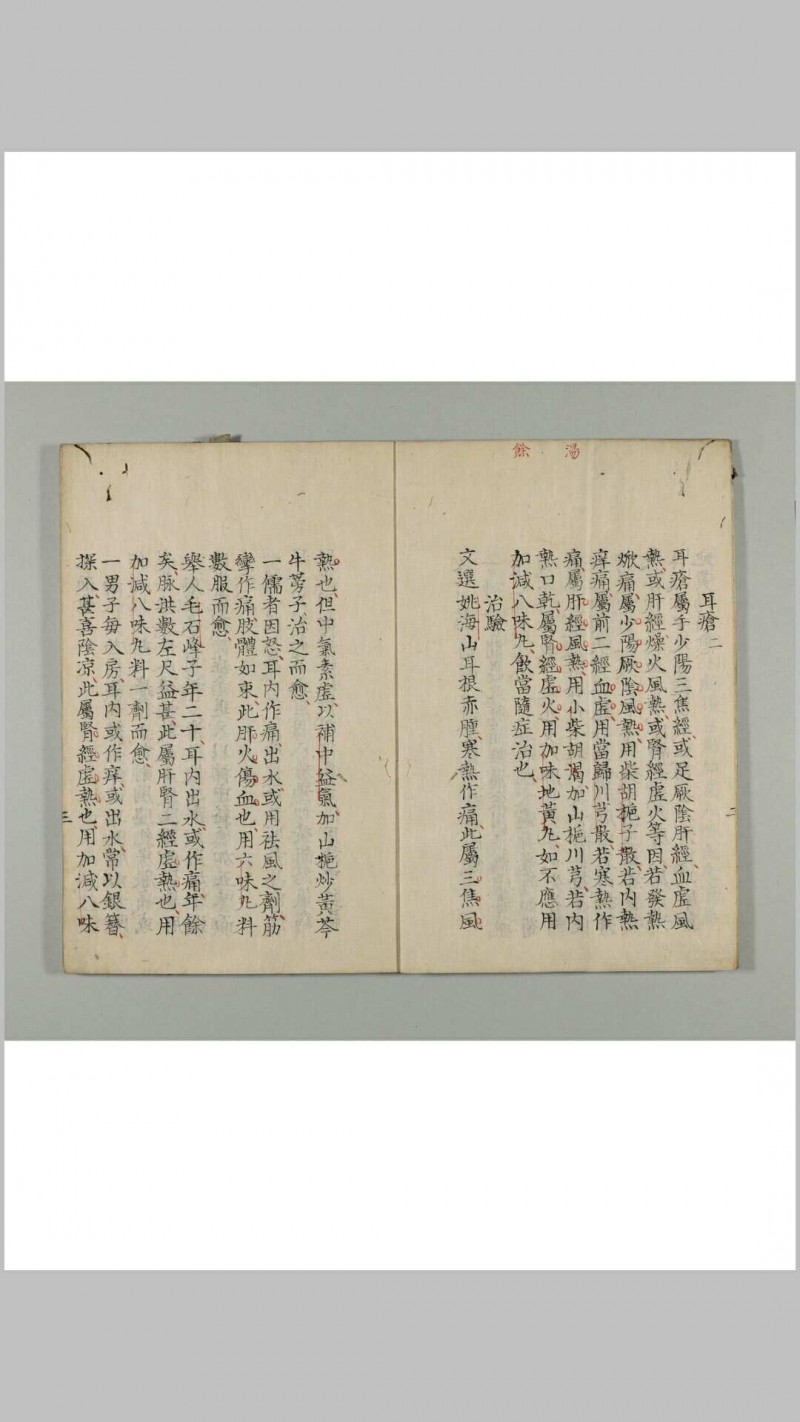 湯
餘
耳瘡二
耳瘡屬手少陽三焦經或足厥陰肝經血虛風
熱或肝經燥火風熱或腎經虛火等因若發熱
焮痛屬少陽厥陰風熱用柴胡梔子散若内熱
痒痛屬前二經血虛用當歸川芎散若寒熱作
痛屬肝經風熱用小柴胡湯加山梔川芎若内
熱口乾屬腎經虛火用加味地黃丸如不應用
加減八味丸飲當隨症治也
治驗
文選姚海山耳根赤腫寒熱作痛此屬三焦風
熱也但中氣素虛以補中益氣加山梔炒黃芩
牛蒡子治之而愈
一儒者因怒耳内作痛出水或用祛風之劑筋
攣作痛肢體如束此肝火傷血也用六味丸料
數服而愈
舉人毛石峰子年二十耳内出水或作痛年餘
矣脉洪數左尺益甚此屬肝腎二經虛熱也用
加減八味丸料一劑而愈
一男子每入房耳内或作痒或出水常以銀簪
探入甚喜陰凉此屬腎經虛熱也用加減八味
二
三